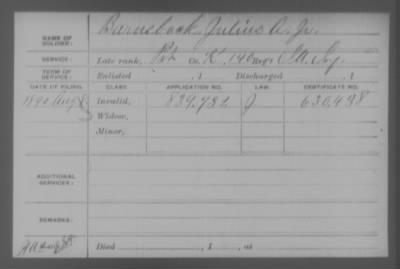 NAME OF SOLDIER: Barnsback, Julius A. Jr.
SERVICE: Late rank, Pvt Co. K, 140 Reg't Ill. Inf.
TERM OF SERVICE: Enlisted , 1 Discharged , 1
DATE OF FILING. CLASS. APPLICATION NO. LAW. CERTIFICATE NO.
1890 Aug Invalid, 839.732 J 630.498
Widow,
Minor,
ADDITIONAL SERVICES:
REMARKS:
Died , 1 , at